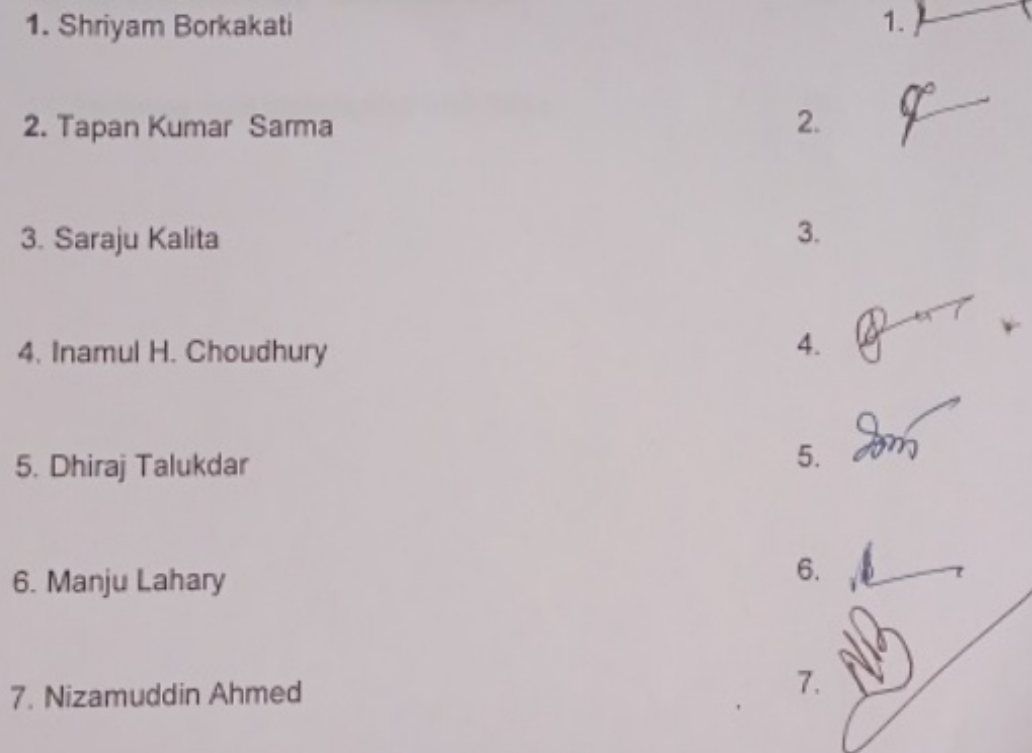 1. Shriyam Borkakati 1.
2. Tapan Kumar Sarma 2.
3. Saraju Kalita 3.
4. Inamul H. Choudhury 4.
5. Dhiraj Talukdar 5.
6. Manju Lahary 6.
7. Nizamuddin Ahmed 7.